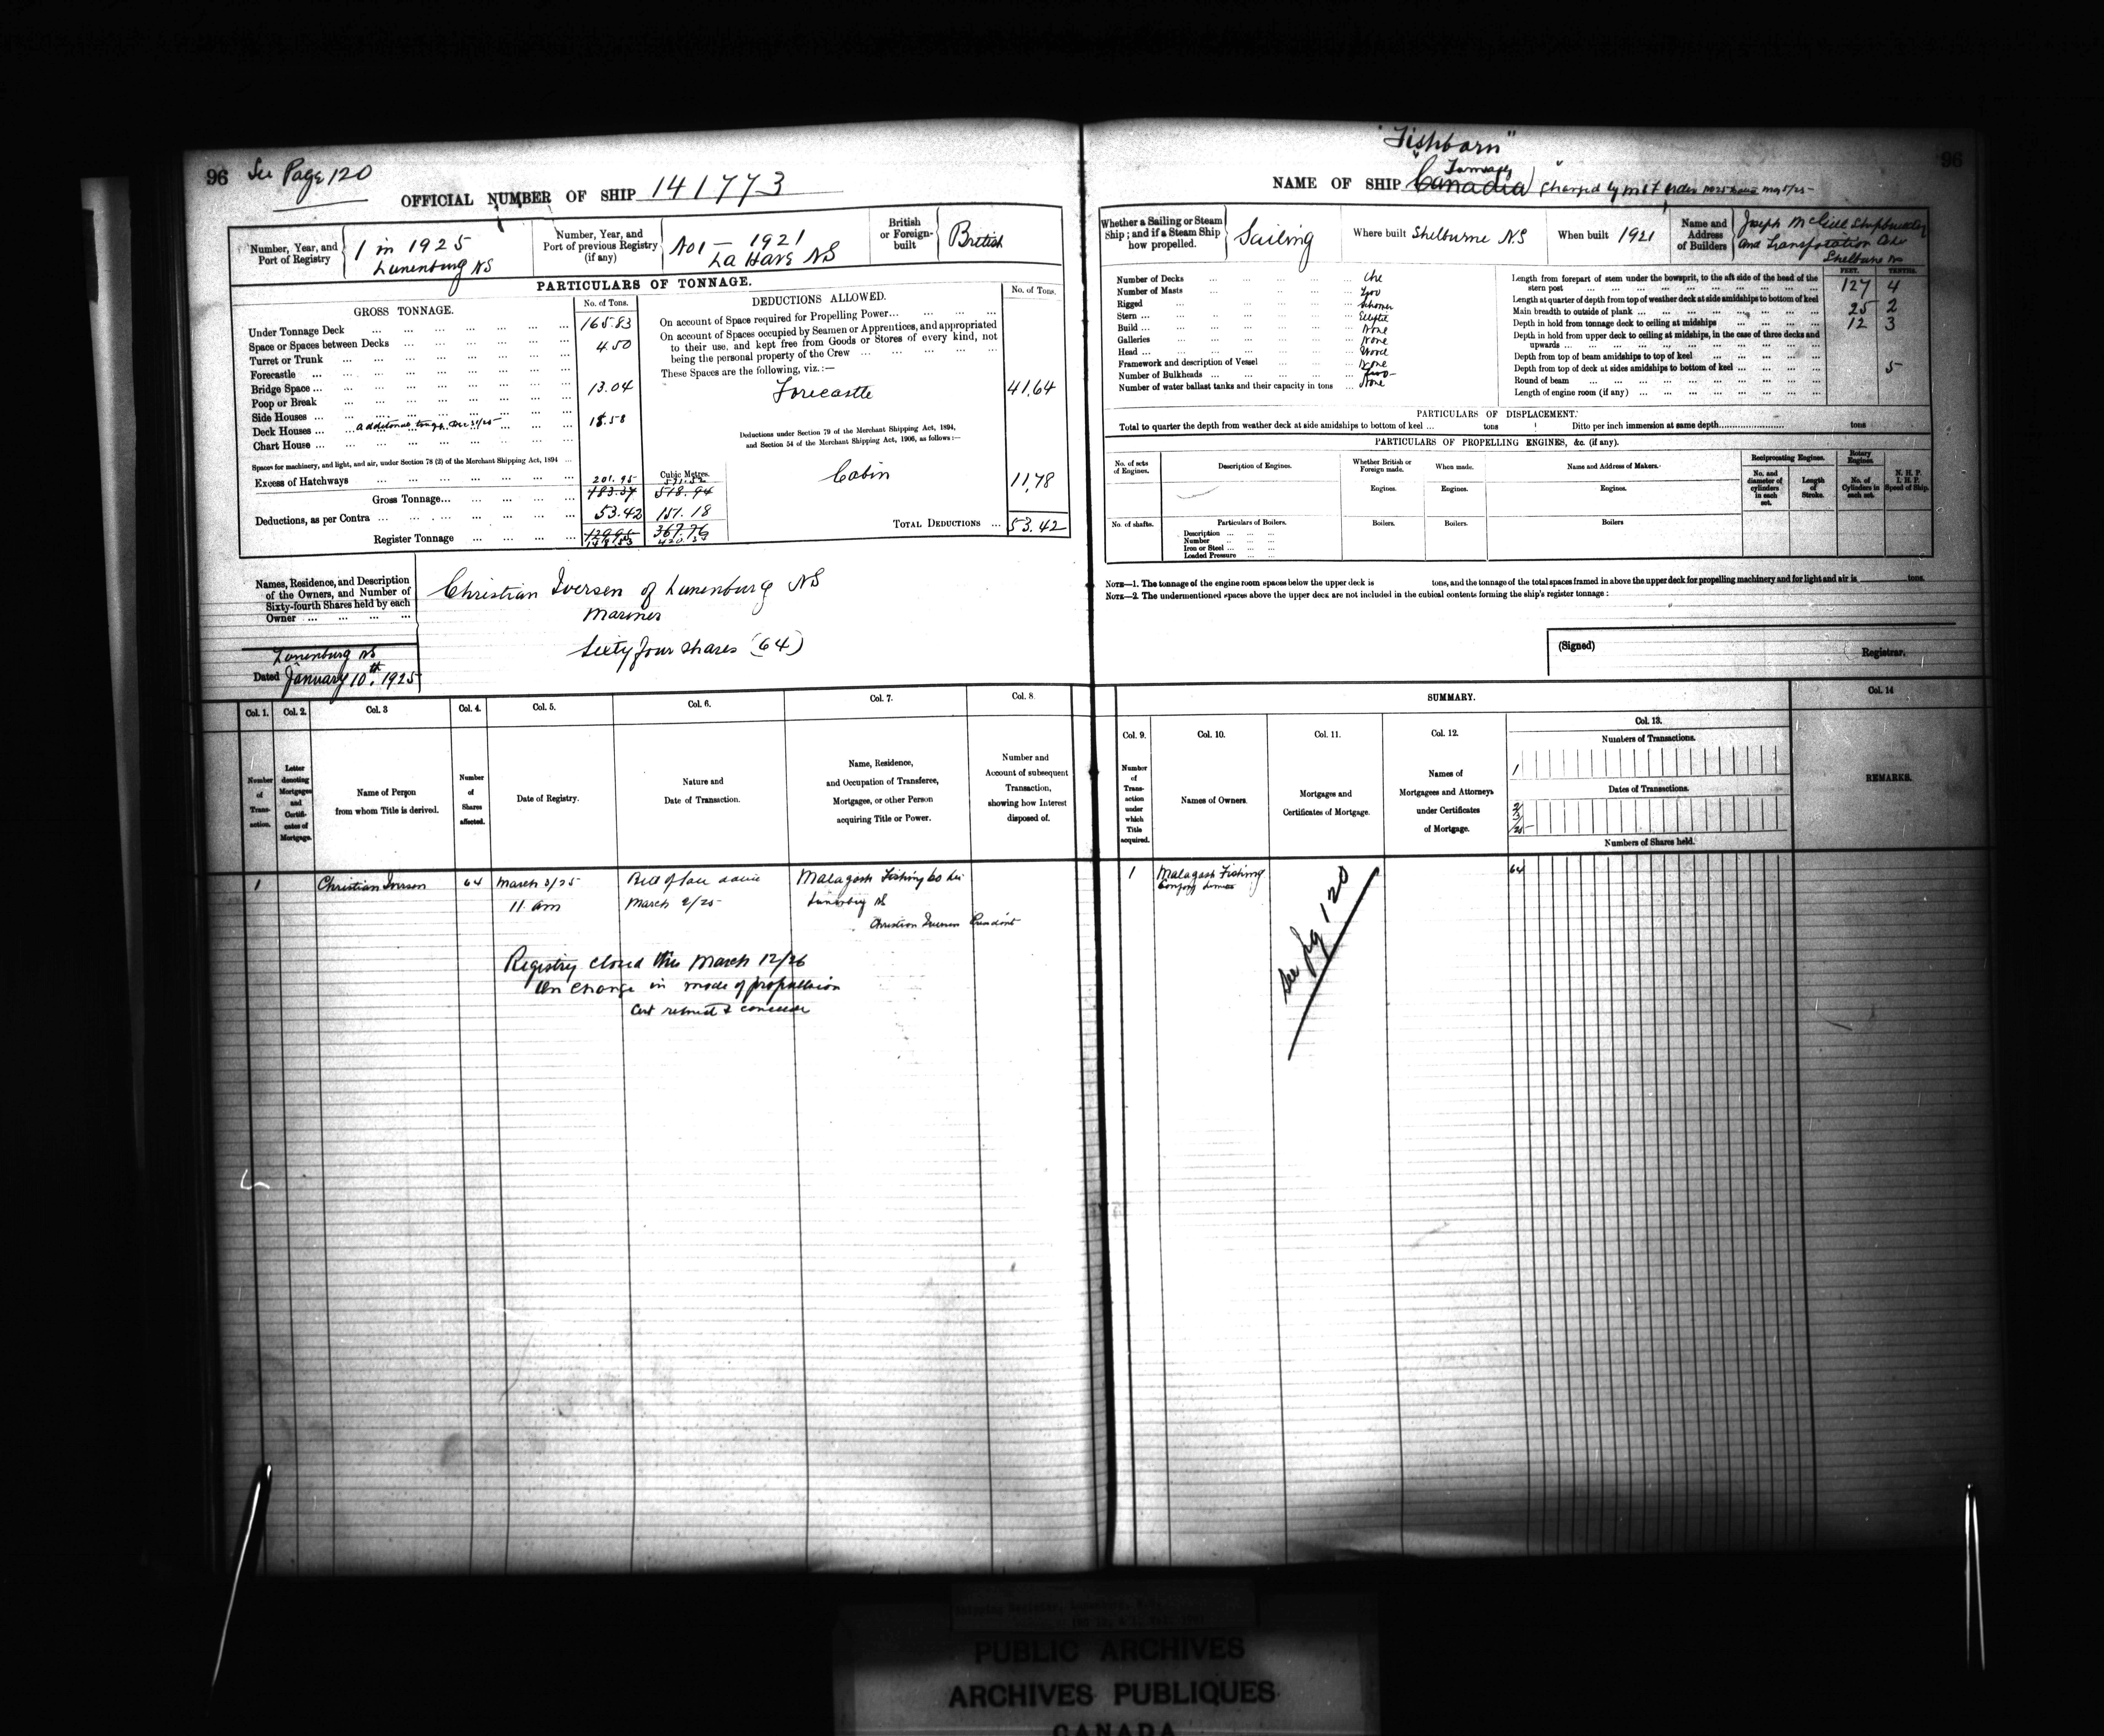 96 See Page 120
OFFICIAL NUMBER OF SHIP 141773
Number, Year, and Port of Registry
1 in 1925
Lunenburg NS
Number, Year, and Port of previous Registry (if any)
No 1 — 1921
La Have NS
British or Foreign-built
British
PARTICULARS OF TONNAGE.
GROSS TONNAGE.
No. of Tons.
Under Tonnage Deck ... 165.83
Space or Spaces between Decks ... 4.50
Turret or Trunk ...
Forecastle ...
Bridge Space ... 13.04
Poop or Break ...
Side Houses ...
Deck Houses ... 18.58
Chart House ...
Spaces for machinery, and light, and air, under Section 78 (2) of the Merchant Shipping Act, 1894 ...
Excess of Hatchways ...
201.95
Cubic Metres.
Gross Tonnage ... 183.37 518.94
Deductions, as per Contra ... 53.42 151.18
Register Tonnage ... 129.95 367.76
DEDUCTIONS ALLOWED.
No. of Tons.
On account of Space required for Propelling Power ...
On account of Spaces occupied by Seamen or Apprentices, and appropriated to their use, and kept free from Goods or Stores of every kind, not being the personal property of the Crew ...
These Spaces are the following, viz.:—
Forecastle 41.64
Deductions under Section 79 of the Merchant Shipping Act, 1894,
and Section 54 of the Merchant Shipping Act, 1906, as follows:—
Cabin 11.78
TOTAL DEDUCTIONS ... 53.42
Names, Residence, and Description of the Owners, and Number of Sixty-fourth Shares held by each Owner ...
Christian Iversen of Lunenburg NS
Mariner
Sixty four shares (64)
Lunenburg NS
Dated January 10th 1925
Col. 1. Col. 2. Col. 3 Col. 4. Col. 5. Col. 6. Col. 7. Col. 8.
Number of Transaction.
Letter denoting Mortgages and Certificates of Mortgage.
Name of Person from whom Title is derived.
Number of Shares affected.
Date of Registry.
Nature and Date of Transaction.
Name, Residence, and Occupation of Transferee, Mortgagee, or other Person acquiring Title or Power.
Number and Account of subsequent Transaction, showing how Interest disposed of.
1 Christian Iversen 64 March 3/25 Bill of Sale Malagash Fishing Co
11 am March 2/25 Lunenburg NS
Christian Iversen President
Registry closed this March 12/26
on change in mode of propulsion
"Fishborn"
96
NAME OF SHIP Canadia
Whether a Sailing or Steam Ship; and if a Steam Ship how propelled.
Sailing
Where built Shelburne NS
When built 1921
Name and Address of Builders
Joseph McGill Shipbuilding
and Transportation
Shelburne NS
Number of Decks ... One
Number of Masts ... Two
Rigged ... Schooner
Stern ... Elliptic
Build ...
Galleries ... None
Head ...
Framework and description of Vessel ... Wood
Number of Bulkheads ...
Number of water ballast tanks and their capacity in tons ... None
FEET. TENTHS.
Length from forepart of stem under the bowsprit, to the aft side of the head of the stern post ... 127 4
Length at quarter of depth from top of weather deck at side amidships to bottom of keel
Main breadth to outside of plank ... 25 2
Depth in hold from tonnage deck to ceiling at midships ... 12 3
Depth in hold from upper deck to ceiling at midships, in the case of three decks and upwards ...
Depth from top of beam amidships to top of keel ...
Depth from top of deck at sides amidships to bottom of keel ...
Round of beam ... 5
Length of engine room (if any) ...
PARTICULARS OF DISPLACEMENT.
Total to quarter the depth from weather deck at side amidships to bottom of keel ... tons Ditto per inch immersion at same depth ... tons
PARTICULARS OF PROPELLING ENGINES, &c. (if any).
No. of sets of Engines.
Description of Engines.
Whether British or Foreign made.
When made.
Name and Address of Makers.
Reciprocating Engines.
Rotary Engines
No. and diameter of cylinders in each set.
Length of Stroke.
No. of Cylinders in each set.
N. H. P. I. H. P. Speed of Ship.
Engines. Engines. Engines.
No. of shafts. Particulars of Boilers. Boilers. Boilers. Boilers
Description ...
Number ...
Iron or Steel ...
Loaded Pressure ...
NOTE—1. The tonnage of the engine room spaces below the upper deck is tons, and the tonnage of the total spaces framed in above the upper deck for propelling machinery and for light and air is tons.
NOTE—2. The undermentioned spaces above the upper deck are not included in the cubical contents forming the ship's register tonnage:
(Signed) Registrar.
SUMMARY.
Col. 9. Col. 10. Col. 11. Col. 12. Col. 13. Col. 14
Number of Transaction under which Title acquired.
Names of Owners.
Mortgages and Certificates of Mortgage.
Names of Mortgagees and Attorneys under Certificates of Mortgage.
Numbers of Transactions.
1
Dates of Transactions.
Numbers of Shares held.
REMARKS.
1 Malagash Fishing 64
Company Limited
See pg 120
PUBLIC ARCHIVES
ARCHIVES PUBLIQUES
CANADA